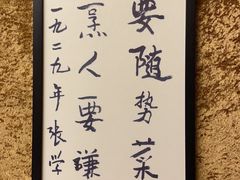 要随势菜
烹人要謙
一九二九年张学